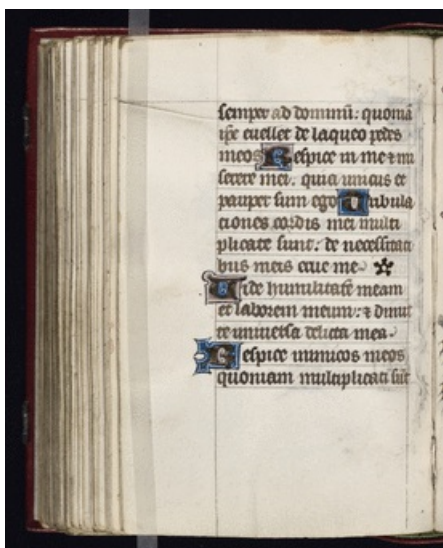 semper ad dominũ: quoniã
ip̃e euellet de laqueo pedes
meos Respice in me ⁊ mi
serere mei. quia unicus et
pauper sum ego Tribula
ciones cordis mei multi
plicate sunt: de necessitati
bus meis erue me.
Vide humilitatẽ meam
et laborem meum: ⁊ dimit
te uniuersa delicta mea.
Respice inimicos meos
quoniam multiplicati sũt